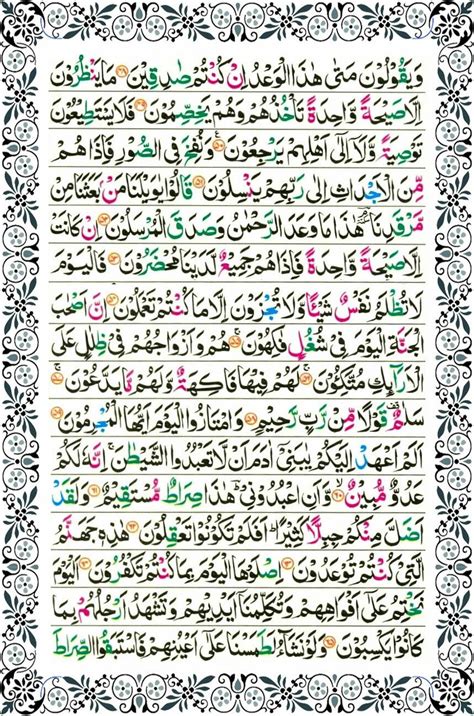 وَيَقُوْلُوْنَ مَتٰى هٰذَا الْوَعْدُ اِنْ كُنْتُمْ صٰدِقِيْنَ ۝۴۸ مَا يَنْظُرُوْنَ
اِلَّا صَيْحَةً وَّاحِدَةً تَاْخُذُهُمْ وَهُمْ يَخِصِّمُوْنَ ۝۴۹ فَلَا يَسْتَطِيْعُوْنَ
تَوْصِيَةً وَّلَاۤ اِلٰۤى اَهْلِهِمْ يَرْجِعُوْنَ ۝۵۰ وَنُفِخَ فِى الصُّوْرِ فَاِذَا هُمْ
مِّنَ الْاَجْدَاثِ اِلٰى رَبِّهِمْ يَنْسِلُوْنَ ۝۵۱ قَالُوْا يٰوَيْلَنَا مَنْۢ بَعَثَنَا مِنْ
مَّرْقَدِنَا ۘ هٰذَا مَا وَعَدَ الرَّحْمٰنُ وَصَدَقَ الْمُرْسَلُوْنَ ۝۵۲ اِنْ كَانَتْ
اِلَّا صَيْحَةً وَّاحِدَةً فَاِذَا هُمْ جَمِيْعٌ لَّدَيْنَا مُحْضَرُوْنَ ۝۵۳ فَالْيَوْمَ
لَا تُظْلَمُ نَفْسٌ شَيْـًٔا وَّلَا تُجْزَوْنَ اِلَّا مَا كُنْتُمْ تَعْمَلُوْنَ ۝۵۴ اِنَّ اَصْحٰبَ
الْجَنَّةِ الْيَوْمَ فِيْ شُغُلٍ فٰكِهُوْنَ ۝۵۵ هُمْ وَاَزْوَاجُهُمْ فِيْ ظِلٰلٍ عَلَى
الْاَرَآئِكِ مُتَّكِـُٔوْنَ ۝۵۶ لَهُمْ فِيْهَا فَاكِهَةٌ وَّلَهُمْ مَّا يَدَّعُوْنَ ۝۵۷
سَلٰمٌ قَوْلًا مِّنْ رَّبٍّ رَّحِيْمٍ ۝۵۸ وَامْتَازُوا الْيَوْمَ اَيُّهَا الْمُجْرِمُوْنَ ۝۵۹
اَلَمْ اَعْهَدْ اِلَيْكُمْ يٰبَنِيْۤ اٰدَمَ اَنْ لَّا تَعْبُدُوا الشَّيْطٰنَ ۚ اِنَّهٗ لَكُمْ
عَدُوٌّ مُّبِيْنٌ ۝۶۰ وَّاَنِ اعْبُدُوْنِيْ ؕ هٰذَا صِرَاطٌ مُّسْتَقِيْمٌ ۝۶۱ وَلَقَدْ
اَضَلَّ مِنْكُمْ جِبِلًّا كَثِيْرًا ؕ اَفَلَمْ تَكُوْنُوْا تَعْقِلُوْنَ ۝۶۲ هٰذِهٖ جَهَنَّمُ
الَّتِيْ كُنْتُمْ تُوْعَدُوْنَ ۝۶۳ اِصْلَوْهَا الْيَوْمَ بِمَا كُنْتُمْ تَكْفُرُوْنَ ۝۶۴ اَلْيَوْمَ
نَخْتِمُ عَلٰۤى اَفْوَاهِهِمْ وَتُكَلِّمُنَاۤ اَيْدِيْهِمْ وَتَشْهَدُ اَرْجُلُهُمْ بِمَا
كَانُوْا يَكْسِبُوْنَ ۝۶۵ وَلَوْ نَشَآءُ لَطَمَسْنَا عَلٰۤى اَعْيُنِهِمْ فَاسْتَبَقُوا الصِّرَاطَ